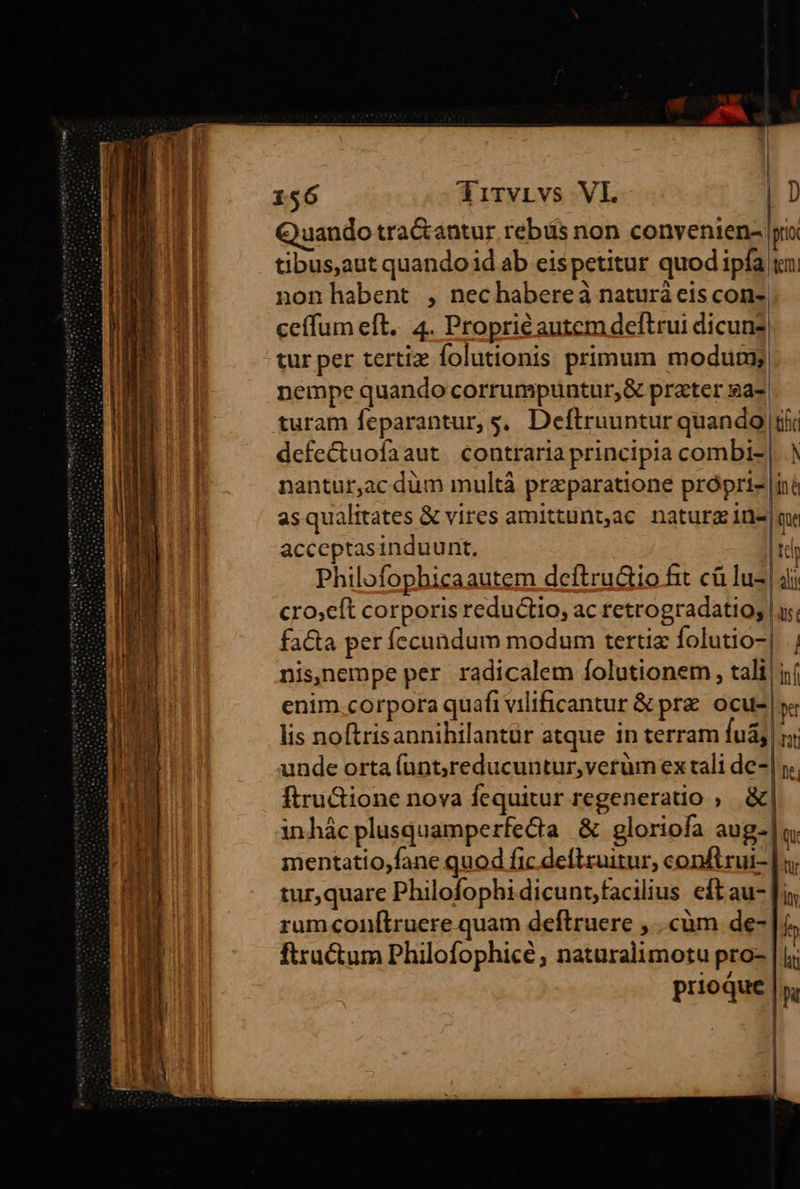 156 TITVLVS VI.
Quando tractantur rebus non convenien-
tibus,aut quando id ab eis petitur quod ipſa
non habent , nec habere à naturâ eis con-
ceſſum eſt. 4. Propriè autem deſtrui dicun-
tur per tertiæ ſolutionis primum modum,
nempe quando corrumpuntur,& præter na-
turam ſeparantur, 5. Deſtruuntur quando
defectuoſa aut contraria principia combi-
nantur,ac dùm multâ præparatione própri-
as qualitates & vires amittunt,ac naturæ in-
acceptas induunt.
Philoſophica autem deſtructio fit cū lu-
cro,eſt corporis reductio, ac retrogradatio,
facta per ſecundum modum tertiæ ſolutio-
nis,nempe per radicalem ſolutionem , tali
enim corpora quaſi vilificantur & præ ocu-
lis noſtris annihilantur atque in terram ſuā,
unde orta ſunt,reducuntur,verùm ex tali de-
ſtructione nova ſequitur regeneratio , &
in hâc plusquamperfecta & glorioſa aug-
mentatio,ſane quod ſic deſtruitur, conſtrui-
tur,quare Philoſophi dicunt,facilius eſt au-
rum conſtruere quam deſtruere , cùm de-
ſtructum Philoſophicè, naturali motu pro-
prioque